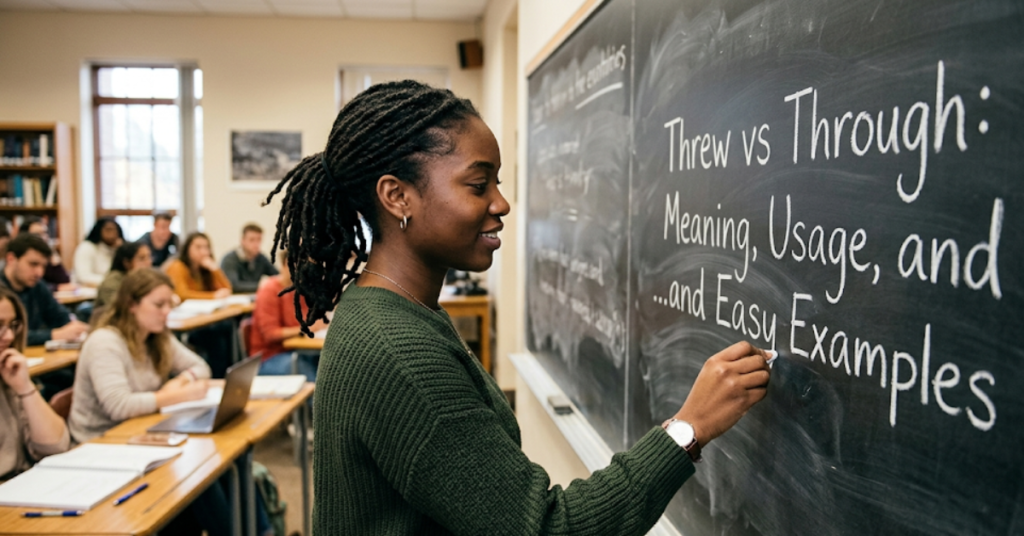 Threw vs Through:
Meaning, Usage, and
...and Easy Examples